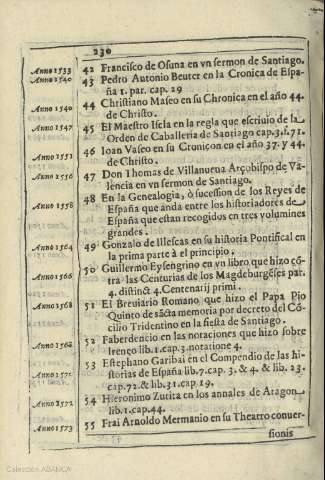 230
Anno 1533 42 Francisco de Osuna en vn sermon de Santiago.
Anno 1540 43 Pedro Antonio Beuter en la Cronica de Espa-
ña 1. par. cap. 29
Anno 1540 44 Christiano Maseo en su Chronica en el año 44.
de Christo.
Anno 1547 45 El Maestro Isla en la regla que escriuio de la
Orden de Caballeria de Santiago cap.3.§.71.
Anno 1551 46 Ioan Vaseo en su Cronicon en el año 37. y 44.
de Christo.
Anno 1556 47 Don Thomas de Villanueva Arçobispo de Va-
lencia en vn sermon de Santiago.
Anno 1558 48 En la Genealogia, ò sucession de los Reyes de
España que anda entre los historiadores de
España que estan recogidos en tres volumines
grandes.
Anno 1564 49 Gonzalo de Illescas en su historia Pontifical en
la prima parte à el principio.
Anno 1566 50 Guillermo Eysengrino en vn libro que hizo cō-
tra las Centurias de los Magdeburgēses par.
4. distinct 4. Centenarij primi.
Anno 1568 51 El Breviario Romano que hizo el Papa Pio
Quinto de sācta memoria por decreto del Cō-
cilio Tridentino en la fiesta de Santiago.
Anno 1568 52 Faberdencio en las notaciones que hizo sobre
Ireneo lib.1.cap.3.notatione 4.
Anno 1571 53 Estephano Garibai en el Compendio de las hi-
storias de España lib.7.cap. 3. & 4. & lib. 23.
cap.72.& lib.31.cap 19.
Anno 1572 54 Hieronimo Zurita en los annales de Aragon
lib.1.cap.44.
Anno 1573 55 Frai Arnoldo Mermanio en su Theatro conver-
sionis
Colección ABANCA